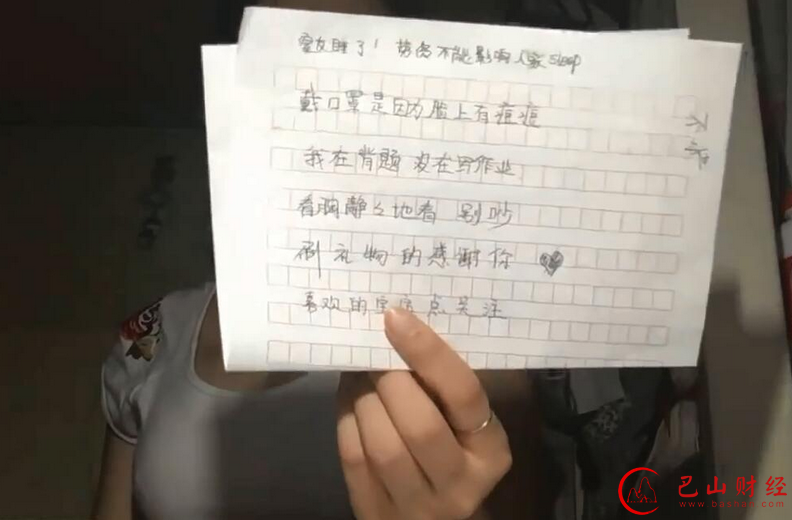 室友睡了! 不能影响人家 sleep
戴口罩是因为脸上有痘痘
我在背题 没在写作业
看胸静々地看 别吵
刷礼物的感谢你
喜欢的宝宝点关注
不
巴山财经